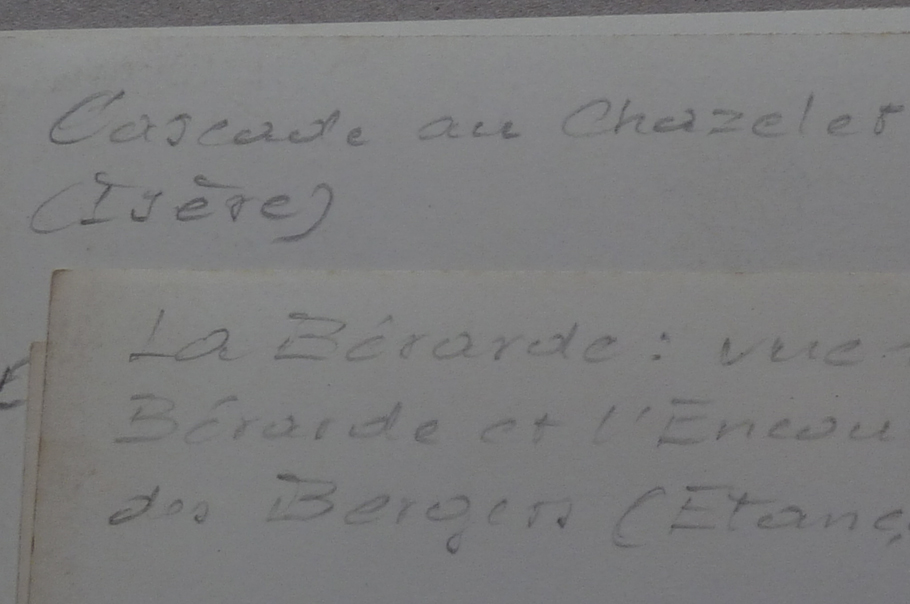 Cascade au Chazelet
(Isère)
La Bérarde : vue
Bérarde et l'Encou
des Bergers (Etanç